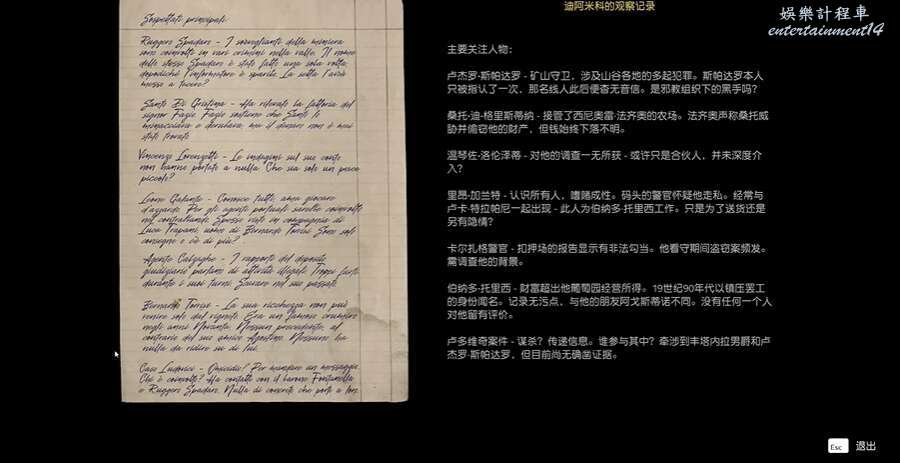 迪阿米科的观察记录
娛樂計程車
entertainment14
Sospettati principali:
Ruggero Spadaro - I sorvegliante della miniera
sono coinvolto in vari crimini nella valle. Il nome
dello stesso Spadaro è stato fatto una sola volta,
dopodiché l'informatore è sparito. La setta l'avrà
messo a tacere?
Santo Di Cristina - Ha rilevato la fattoria del
signor Fazio. Fazio sostiene che Santo li
minacciava e derubava, ma il denaro non è mai
stato trovato.
Vincenzo Lorenzetti - Le indagini sul suo conto
non hanno portato a nulla. Che sia solo un pesce
piccolo?
Leone Galante - Conosce tutti, ama giocare
d'azzardo. Per gli agenti portuali sarebbe coinvolto
nel contrabbando. Spesso visti in compagnia di
Luca Trapani, uomo di Bernardo Torrisi. Sono solo
consegne o c'è di più?
Agente Calzaghe - I rapporti del deposito
giudiziario parlano di attività illegali. Troppi furti
durante i suoi turni. Scavare nel suo passato.
Bernardo Torrisi - La sua ricchezza non può
venire solo dal vigneto. Era un famoso crumiro
negli anni Novanta. Nessun precedente, al
contrario del suo amico Agostino. Nessuno ha
nulla da ridire su di lui.
Caso Ludovico - Omicidio? Per mandare un messaggio.
Chi è coinvolto? Ha contatti con il barone Fontanella
e Ruggero Spadaro. Nulla di concreto che porti a loro.
主要关注人物：
卢杰罗·斯帕达罗 - 矿山守卫，涉及山谷各地的多起犯罪。斯帕达罗本人
只被指认了一次，那名线人此后便杳无音信。是邪教组织下的黑手吗？
桑托·迪·格里斯蒂纳 - 接管了西尼奥雷·法齐奥的农场。法齐奥声称桑托威
胁并偷窃他的财产，但钱始终下落不明。
温琴佐·洛伦泽蒂 - 对他的调查一无所获 - 或许只是合伙人，并未深度介
入？
里昂·加兰特 - 认识所有人，嗜赌成性。码头的警官怀疑他走私。经常与
卢卡·特拉帕尼一起出现 - 此人为伯纳多·托里西工作。只是为了送货还是
另有隐情？
卡尔扎格警官 - 扣押场的报告显示有非法勾当。他看守期间盗窃案频发。
需调查他的背景。
伯纳多·托里西 - 财富超出他葡萄园经营所得。19世纪90年代以镇压罢工
的身份闻名。记录无污点，与他的朋友阿戈斯蒂诺不同。没有任何一个人
对他留有评价。
卢多维奇案件 - 谋杀？传递信息。谁参与其中？牵涉到丰塔内拉男爵和卢
杰罗·斯帕达罗，但目前尚无确凿证据。
Esc 退出